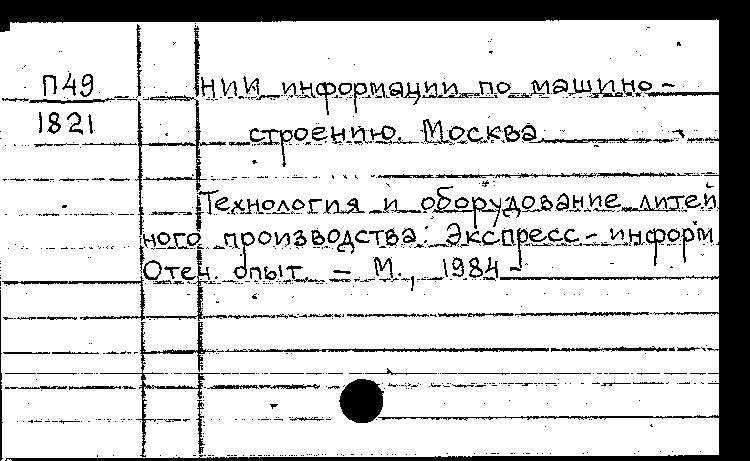 П49
1821
НИИ информации по машино-
строению. Москва
Технология и оборудование литей
ного производства: Экспресс-информ
Отеч. опыт – М., 1984 -